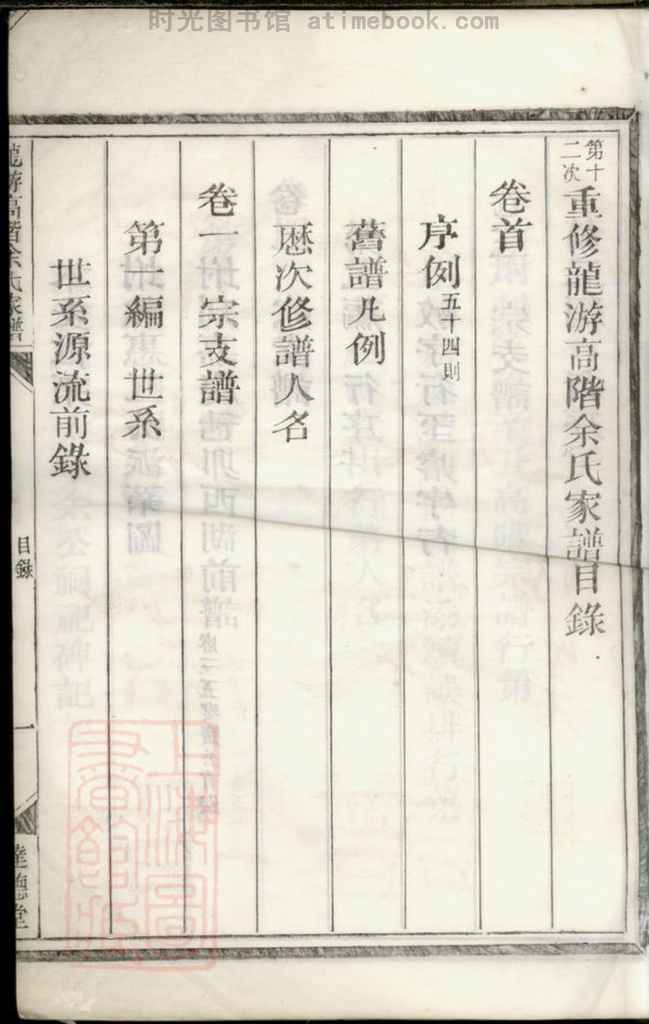 时光图书馆 atimebook.com
第十二次重修龍游高階余氏家譜目錄
卷首
序例五十四則
舊譜凡例
歷次修譜人名
卷一 宗支譜
第一編 世系
世系源流前錄
龍游高階余氏家譜
目錄
一
達德堂
上海圖書館藏